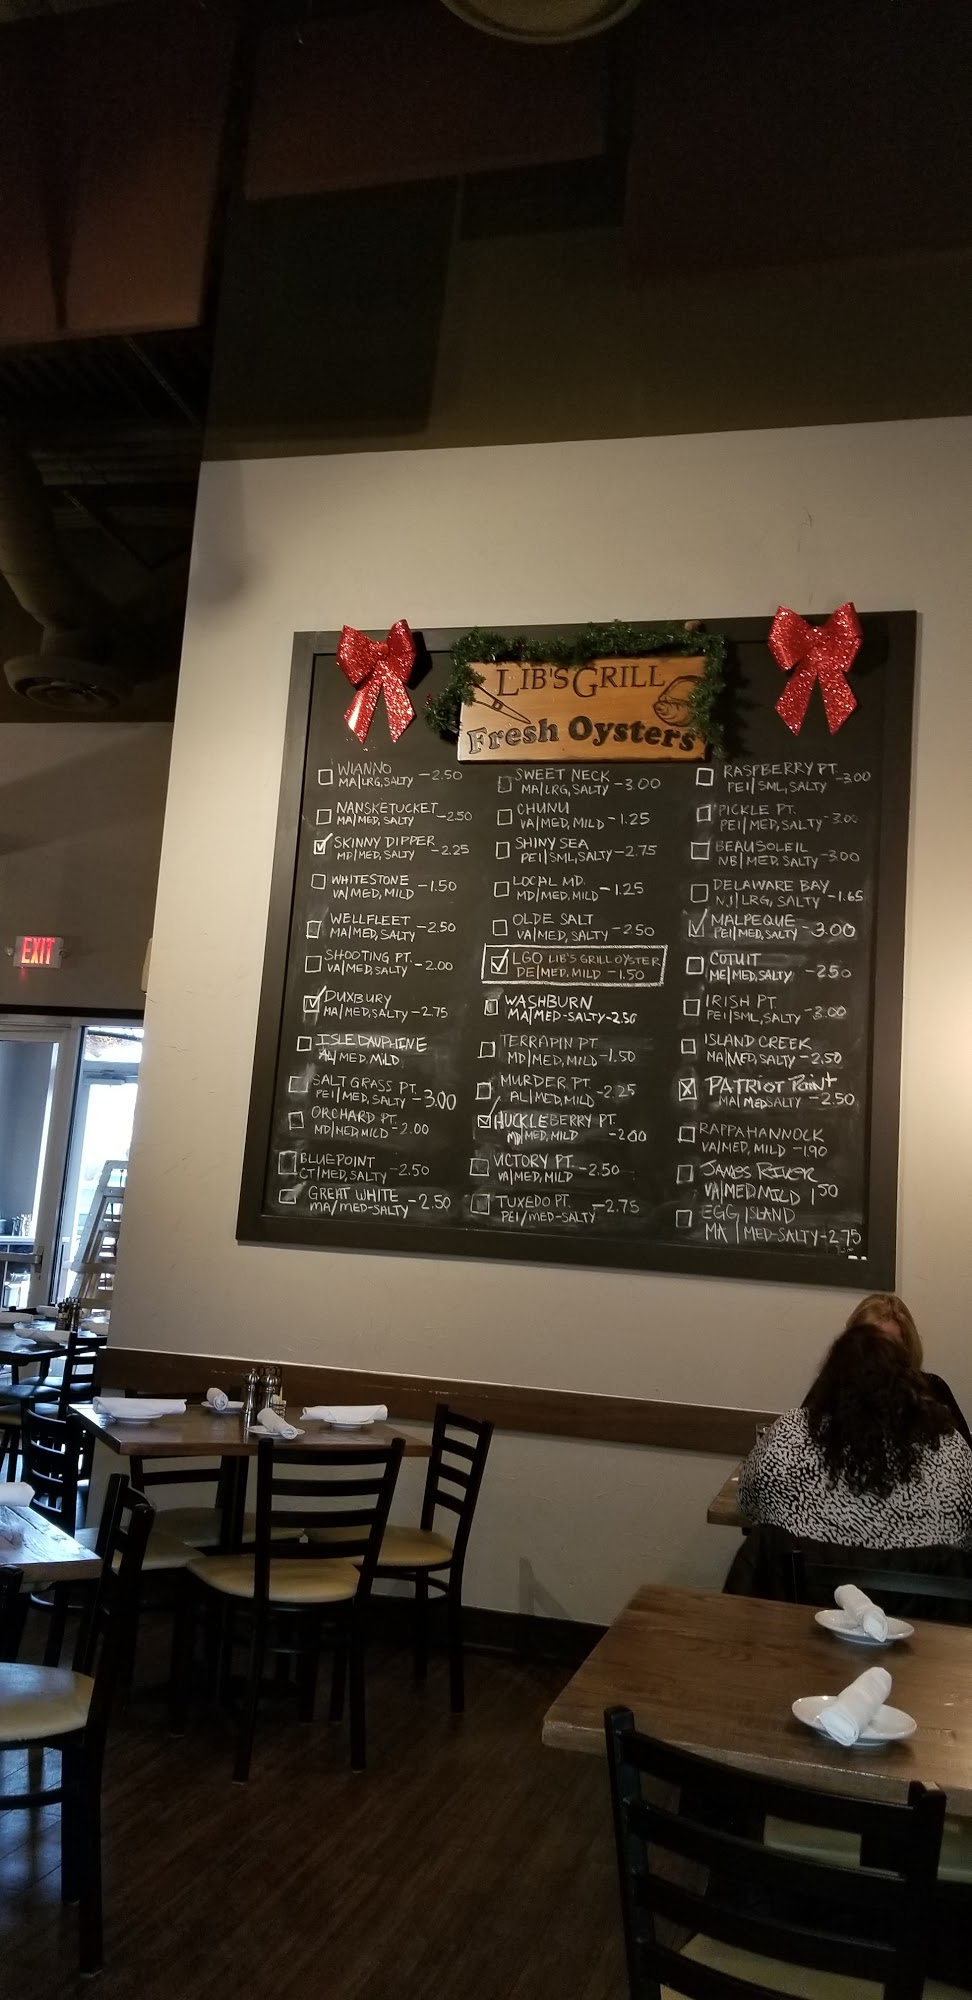 LIB'S GRILL
Fresh Oysters
WIANNO
MA|LRG, SALTY -2.50
NANSKETUCKET
MA|MED, SALTY -2.50
SKINNY DIPPER
MD|MED, SALTY -2.25
WHITESTONE
VA|MED, MILD -1.50
WELLFLEET
MA|MED, SALTY -2.50
SHOOTING PT.
VA|MED, SALTY -2.00
DUXBURY
MA|MED, SALTY -2.75
ISLE DAUPHINE
AL|MED, MILD
SALT GRASS PT.
PEI|MED, SALTY -3.00
ORCHARD PT.
MD|MED, MILD -2.00
BLUEPOINT
CT|MED, SALTY -2.50
GREAT WHITE
MA/MED-SALTY -2.50
SWEET NECK
MA|LRG, SALTY -3.00
CHUNU
VA|MED, MILD -1.25
SHINY SEA
PEI|SML, SALTY -2.75
LOCAL MD.
MD|MED, MILD -1.25
OLDE SALT
VA|MED, SALTY -2.50
LGO LIB'S GRILL OYSTER
DE|MED, MILD -1.50
WASHBURN
MA|MED-SALTY-2.50
TERRAPIN PT.
MD|MED, MILD -1.50
MURDER PT.
AL|MED, MILD -2.25
HUCKLEBERRY PT.
MD|MED, MILD -2.00
VICTORY PT.
VA|MED, MILD -2.50
TUXEDO PT.
PEI/MED-SALTY -2.75
RASPBERRY PT.
PEI|SML, SALTY -3.00
PICKLE PT.
PEI|MED, SALTY -3.00
BEAUSOLEIL
NB|MED, SALTY -3.00
DELAWARE BAY
NJ|LRG, SALTY -1.65
MALPEQUE
PEI|MED, SALTY -3.00
COTUIT
ME|MED, SALTY -2.50
IRISH PT.
PEI|SML, SALTY -3.00
ISLAND CREEK
MA|MED, SALTY -2.50
PATRIOT Point
MA|MED SALTY -2.50
RAPPAHANNOCK
VA|MED, MILD -1.90
JAMES RIVER
VA|MED MILD 1.50
EGG ISLAND
MA | MED-SALTY-2.75
EXIT